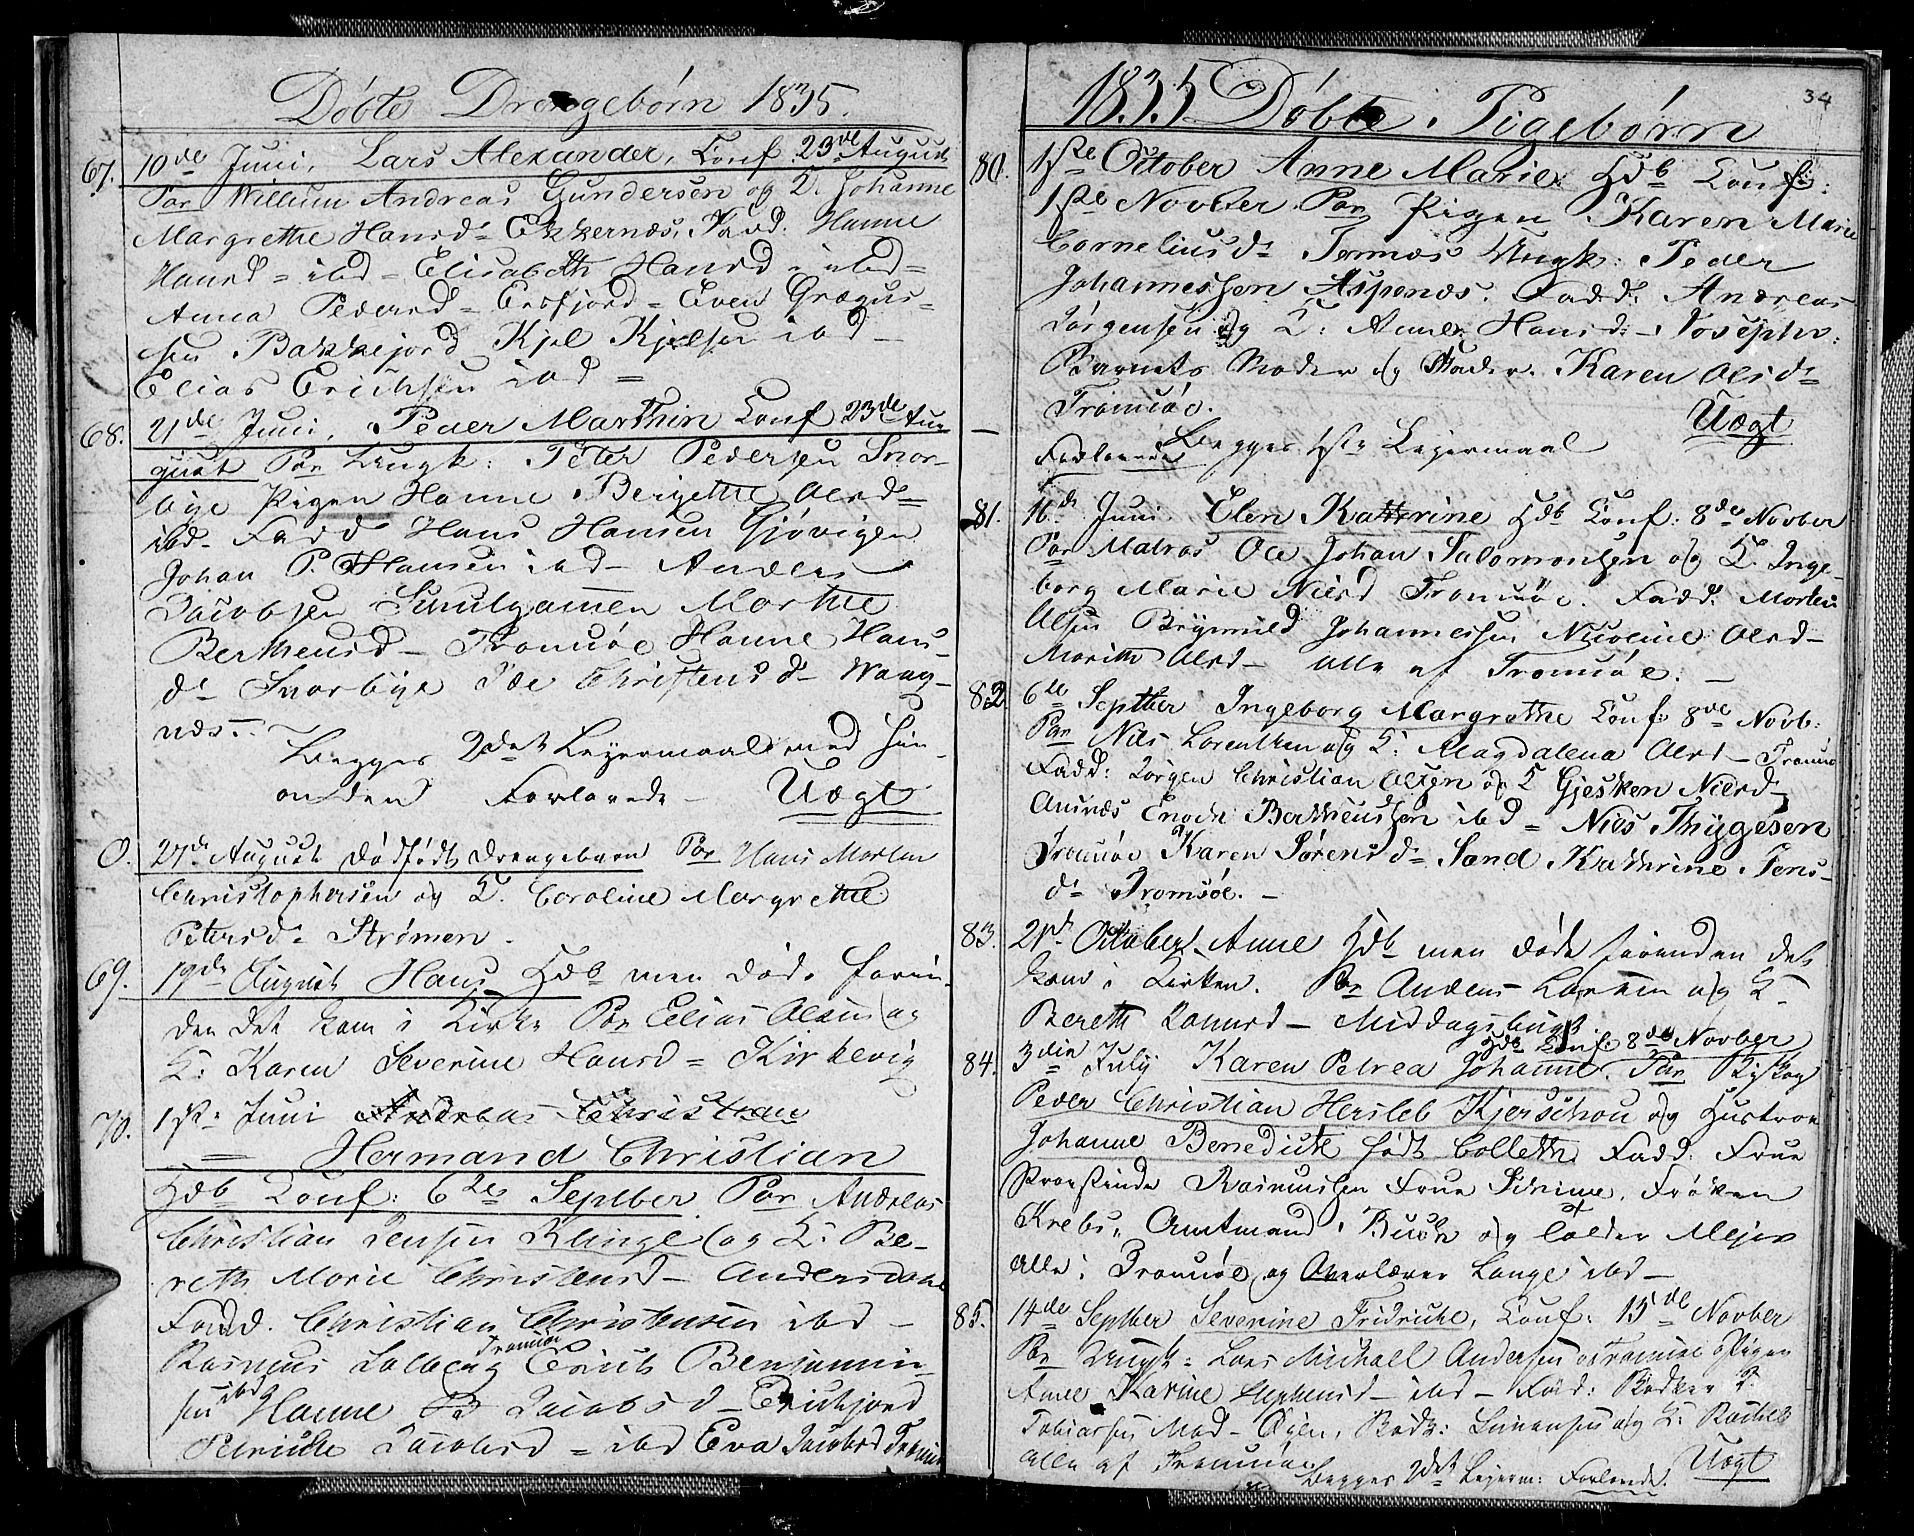 Døbte Drengebørn 1835.
67. 10de Juni, Lars Alexander, Conf 23de August
Par Willum Andreas Gundersen og K. Johanne
Margrethe Hansd= Ekkernæs, Fadd: Hanne
Hansd= ibd= Elisabeth Hansd= ibd=
Anna Pedersd= Ersfjord= Even Grægus=
sen Bakkejord Kjel Kjelsen ibd=
Elias Erichsen ibd=
68. 21de Juni, Peder Marthin Conf 23de Au=
gust Par Ungk: Peter Pedersen Snor=
bye Pigen Hanne Bergethe Olsd=
ibd- Fadd Hans Hansen Gjøvigen
Johan P. Hansen ibd- Anders
Jacobsen Simulgamen Marthe
Bertheusd- Tromsøe Hanne Hans-
d- Snorbye Ide Christensd- Waag-
næs.-
Begges 2det Leyermaal med hin-
anden Forlovede- Uægt
0. 27de August dødfødt Drengebarn Par Hans Morten
Christophersen og K. Caroline Margrethe
Petersd= Strømen.
69. 19de August Hans Hdb men døde forin-
den det kom i Kirke Par Elias Olsen og
K: Karen Severine Hansd= Kirkevig
70. 1ste Juni Andreas Christian
= Hermand Christian
Hdb Conf: 6te Septber Par Andreas
Christian Jensen Klinge og K: Be-
reth Marie Christensd- Andersdahl
Fadd. Christian Christensen ibd-
Tromsøe
Rasmus Solberg Erich Benjamin-
sen ibd Hanne Jacobsd- Erichjord
Petriche Jacobsd= ibd Eva Jacobsd Tromsø
34
1835 Døbte Pigebørn
80. 1ste October Anne Marie Hdb Conf:
1ste Novber Par Pigen Karen Marie
Corneliusd= Tennes Ungk: Peder
Johannessen Aspenæs. Fadd: Andreas
Jørgensen og K: Anne Hansd- Josephs:
Barnets Moder og Fader. Karen Olsd=
Tromsøe. Uægt
Begges 1ste Leyermaal
Forlovede
81. 16de Juni Elen Kathrine Hdb Conf: 8de Novber
Par Matros Ole Johan Salomonsen og K. Inge-
borg Marie Nilsd Tromsøe. Fadd: Morten
Olsen Brynnild Johannessen Nicoline Olsd-
Marith Olsd- alle af Tromsøe.-
82. 6te Septber Ingeborg Margrethe Conf: 8de Novb:
Par Nils Lorentsen og K: Magdalena Olsd- Tromsø
Fadd: Jørgen Christian Olsen og K Gjesken Nilsd-
Ansnæs Enoch Bertheussen ibd= Nils Thygesen
Tromsøe Karen Sørensd= Sand Kathrine Jens-
d= Tromsøe.-
83. 21de October Anne Hdb men døde forinden det
kom i Kirken. Par Anders Larsen og K-
Bereth Larsd- Middagsbugt
Hdb Conf: 8de Novber
84. 3die July Karen Petrea Johanne. Par Biskop
Peder Christian Hersleb Kjerschou og Hustroe
Johanne Benedicte født Colleth. Fadd: Frue
Provstinde Rasmussen Frue Schrive, Frøken
Krebs, Amtmand Buch og Tolder Mejer
alle i Tromsøe og Overlærer Lange ibd-
85. 14de Septber Severine Fridriche, Conf: 15de Novber
Par Ungk: Lars Michall Andersen Tromsøe og Pigen
Anne Karine Stephensd- ibd- Fad: Bødker T.
Tobiassen Mad- Bødk: Simensen og K: Rachel
alle af Tromsøe Uægt
Begges 2det Leyerm: Forlovede.